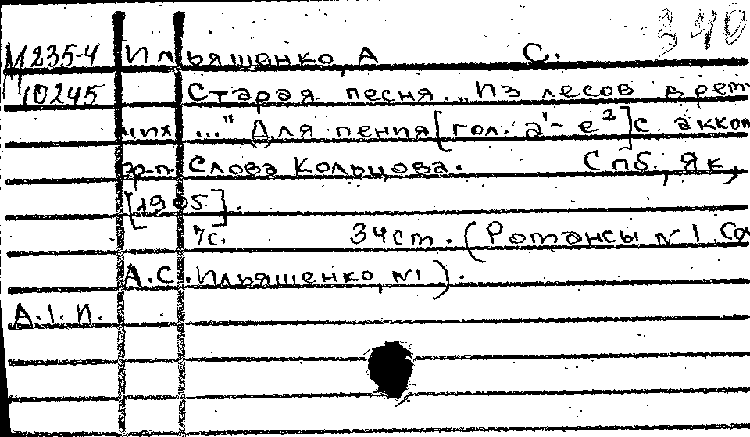 340
М235-4 Ильяшенко, А С.
10245 Старая песня. „Из лесов дрем
чих ..." Для пения [гол. а¹- е²] с акком
ф-п. Слова Кольцова. Спб., Як,
[1905].
7с. 34см. (Романсы №1 Соч
А.С.Ильяшенко, №1).
А.I.п.